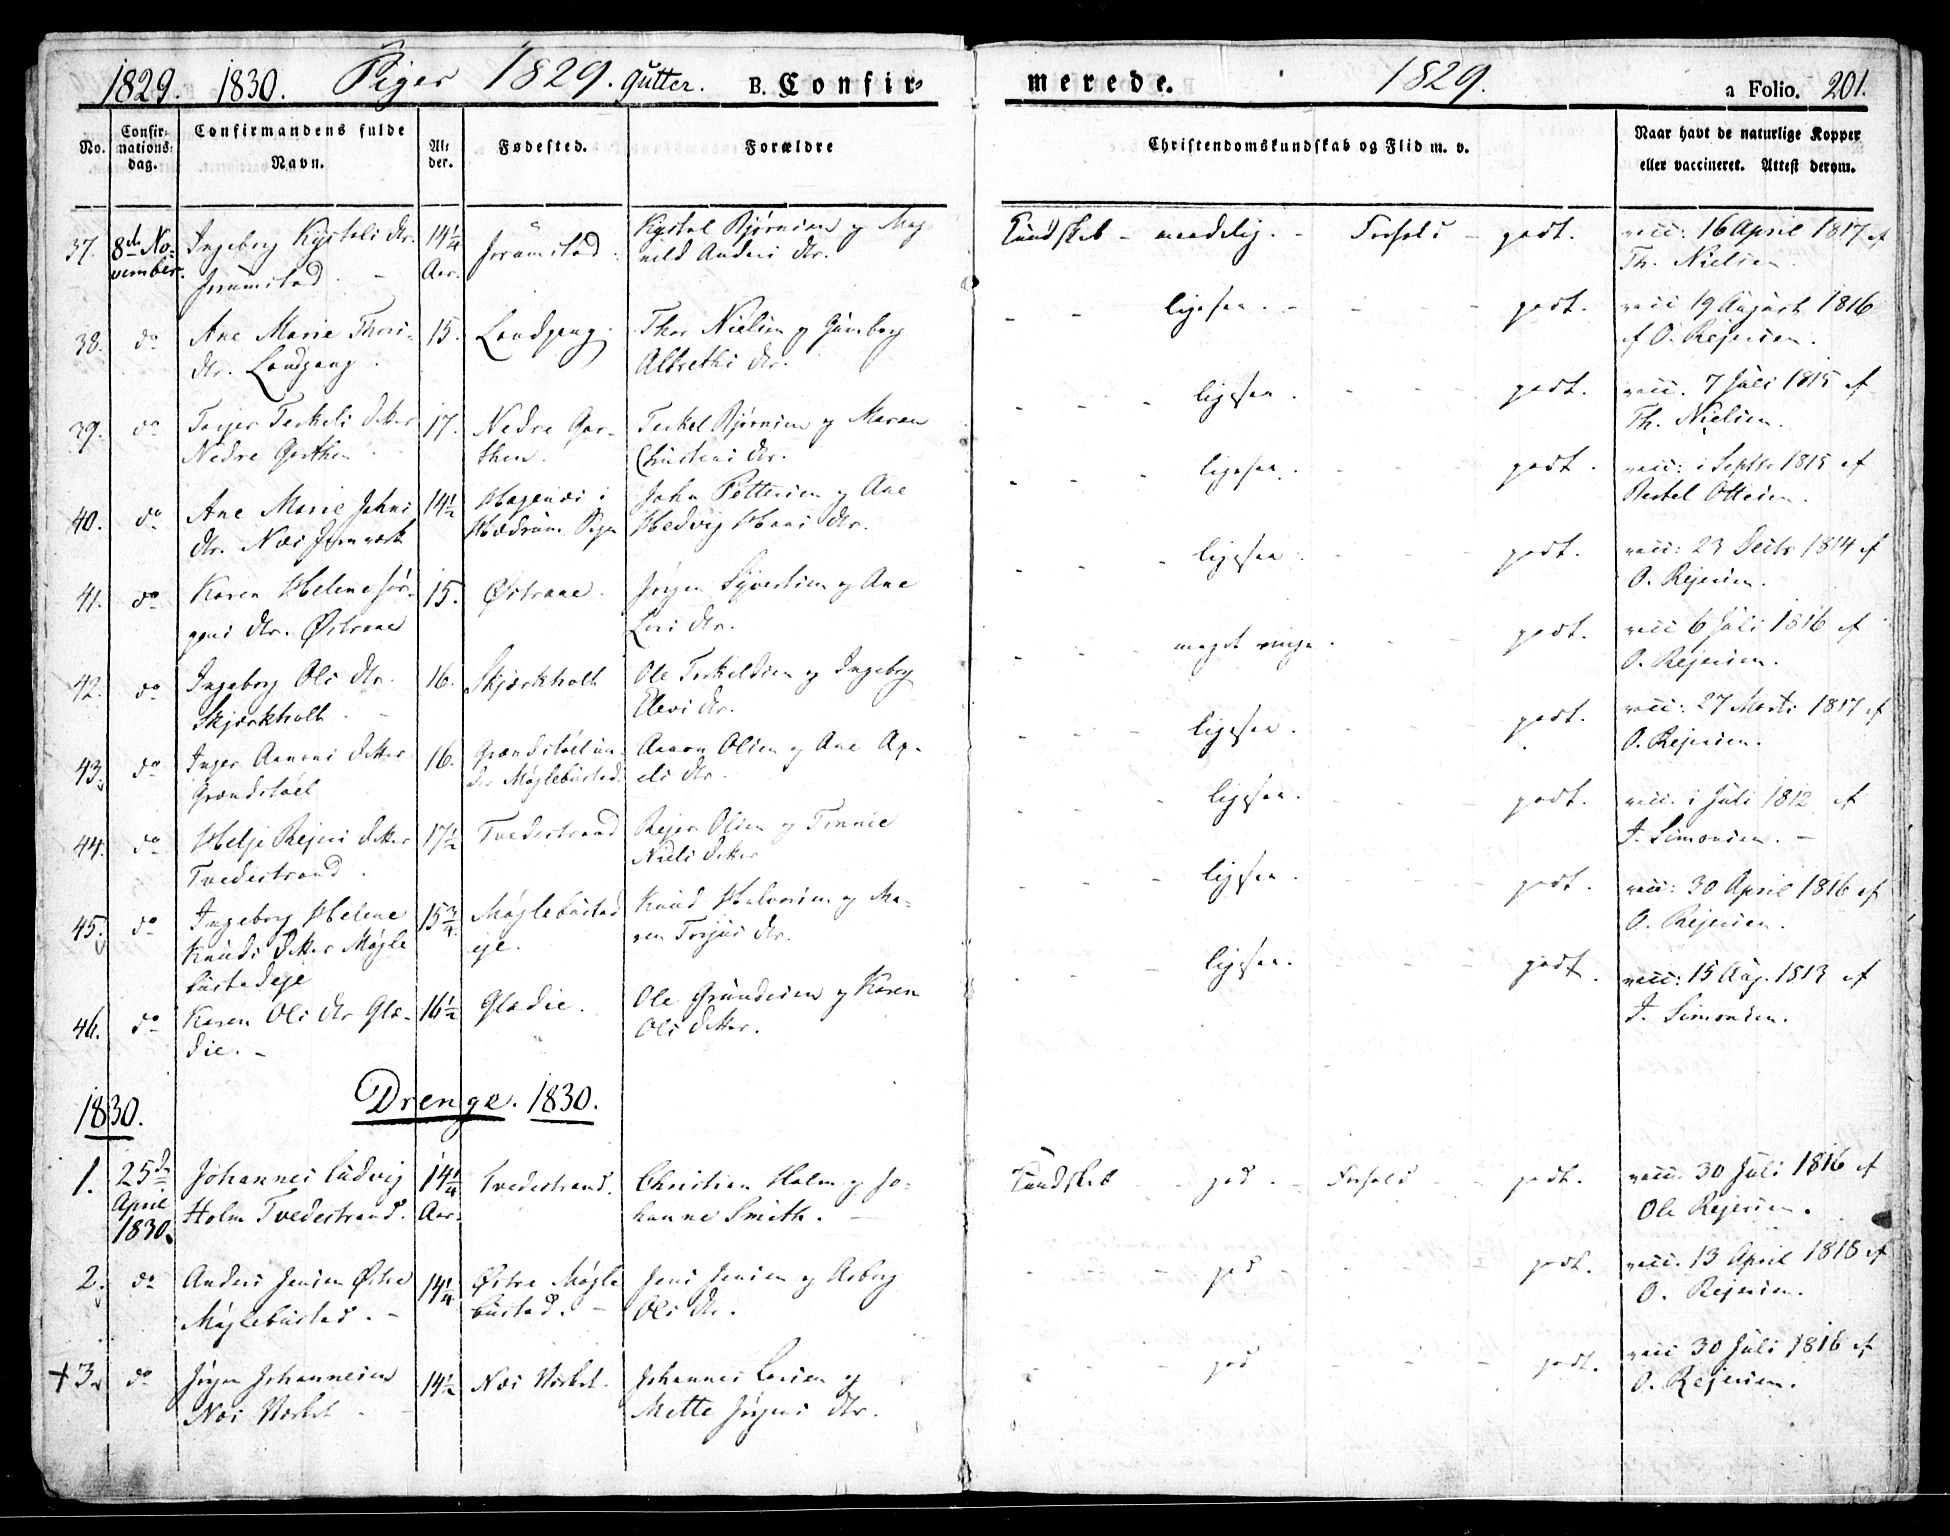 1829. 1830. Piger 1829. Gutter. B. Confir-
merede. 1829. a Folio. 201.
No.
Confir-
mations-
dag.
Confirmandens fulde
Navn.
Al-
der.
Fødested.
Forældre
Christendomskundskab og Flid m. v.
Naar havt de naturlige Kopper
eller vaccineret. Attest derom.
37. 8de No-
vember.
Ingeborg Kystels dtr.
14 1/4
Aar.
Kystel Bjørnsen og
nild Anders dtr.
Kundskab - maadelig. - Forhold - godt.
vacc: 16 April 1817 af
Th. Nielsen.
38. do
Ane Marie Thors-
dtr. Landgang.
15.
Landgang.
Thor Nielsen og Gunborg
Albrethi dtr.
ligesaa. - godt.
vacc 19 August 1816
af O. Rejersen.
39. do
Terkels datter
Nedre Garthen
17.
Nedre Gar-
then.
Terkel Bjørnsen og Maren
Christens dtr.
ligesaa. godt.
vacc. 7 Juli 1815 af
Th. Nielsen.
40. do
Ane Marie Johns
dtr. Næs Jernværk
14 1/2
Hagenæs i
Hedrum
John Pettersen og Ane
Hedvig Hans dtr.
ligesaa. godt.
vacc: i Septbr 1815 af
Bertel Ottesen.
41. do
Karen Helene Jør-
gens dtr. Østeraae
15.
Østeraae.
Jørgen Syvertsen og Ane
Lars dtr.
ligesaa. godt.
vacc: 23 Decbr 1814 af
O. Rejersen.
42. do
Ingeborg Ols dtr.
Skjærkholt.
16.
Skjærkholt
Ole Terkeldsen og Ingeborg
Elevs dtr.
meget ringe. godt.
vacc 6 Juli 1816 af
O. Rejersen.
43. do
Inger Aanons datter
Grændstøel
16.
Grændstøel un-
der Møglebustad.
Aanon Olsen og Ane Ax-
els dtr.
ligesaa. godt.
vacc: 27 Marts 1817 af
O. Rejersen.
44. do
Helje Rejers datter
Tvedestrand.
17 1/2
Tvedestrand
Rejer Olsen og Tonnie
Niels datter
ligesaa. godt.
vacc. i Juli 1812 af
J. Simonsen. -
45. do
Ingeborg Helene
Knuds datter Møgle
bustadeje
15 3/4
Møglebustad
eje.
Knud Halvorsen og Ma-
ren Torjus dtr.
ligesaa. godt.
vacc: 30 April 1816 af
O. Rejersen.
46. do
Karen Ols dtr Glø-
die. -
16 1/2
Glødie.
Ole Gundersen og Karen
Ols datter.
ligesaa. godt.
vacc: 15 Aug. 1813 af
J. Simonsen.
1830. Drenge. 1830.
1. 25de
April
1830.
Johannes Ludvig
Holm Tvedestrand.
14 1/4
Aar.
Tvedestrand.
Christian Holm og Jo-
hanne Smith. -
Kundskab - god. - Forhold - godt.
vacc. 30 Juli 1816 af
Ole Rejersen.
2. do
Anders Jensen Østre
Møglebustad. -
14 1/4
Østre Møgle
bustad. -
Jens Jensen og Asborg
Ols dtr.
god godt.
vacc. 13 April 1818 af
O. Rejersen.
+ 3. do
Jørgen Johannesen
Næs Værket -
14 1/2
Næs Værket.
Johannes Larsen og
Mette Jørgens dtr.
god godt.
vacc 30 Juli 1816 af
O. Rejersen.